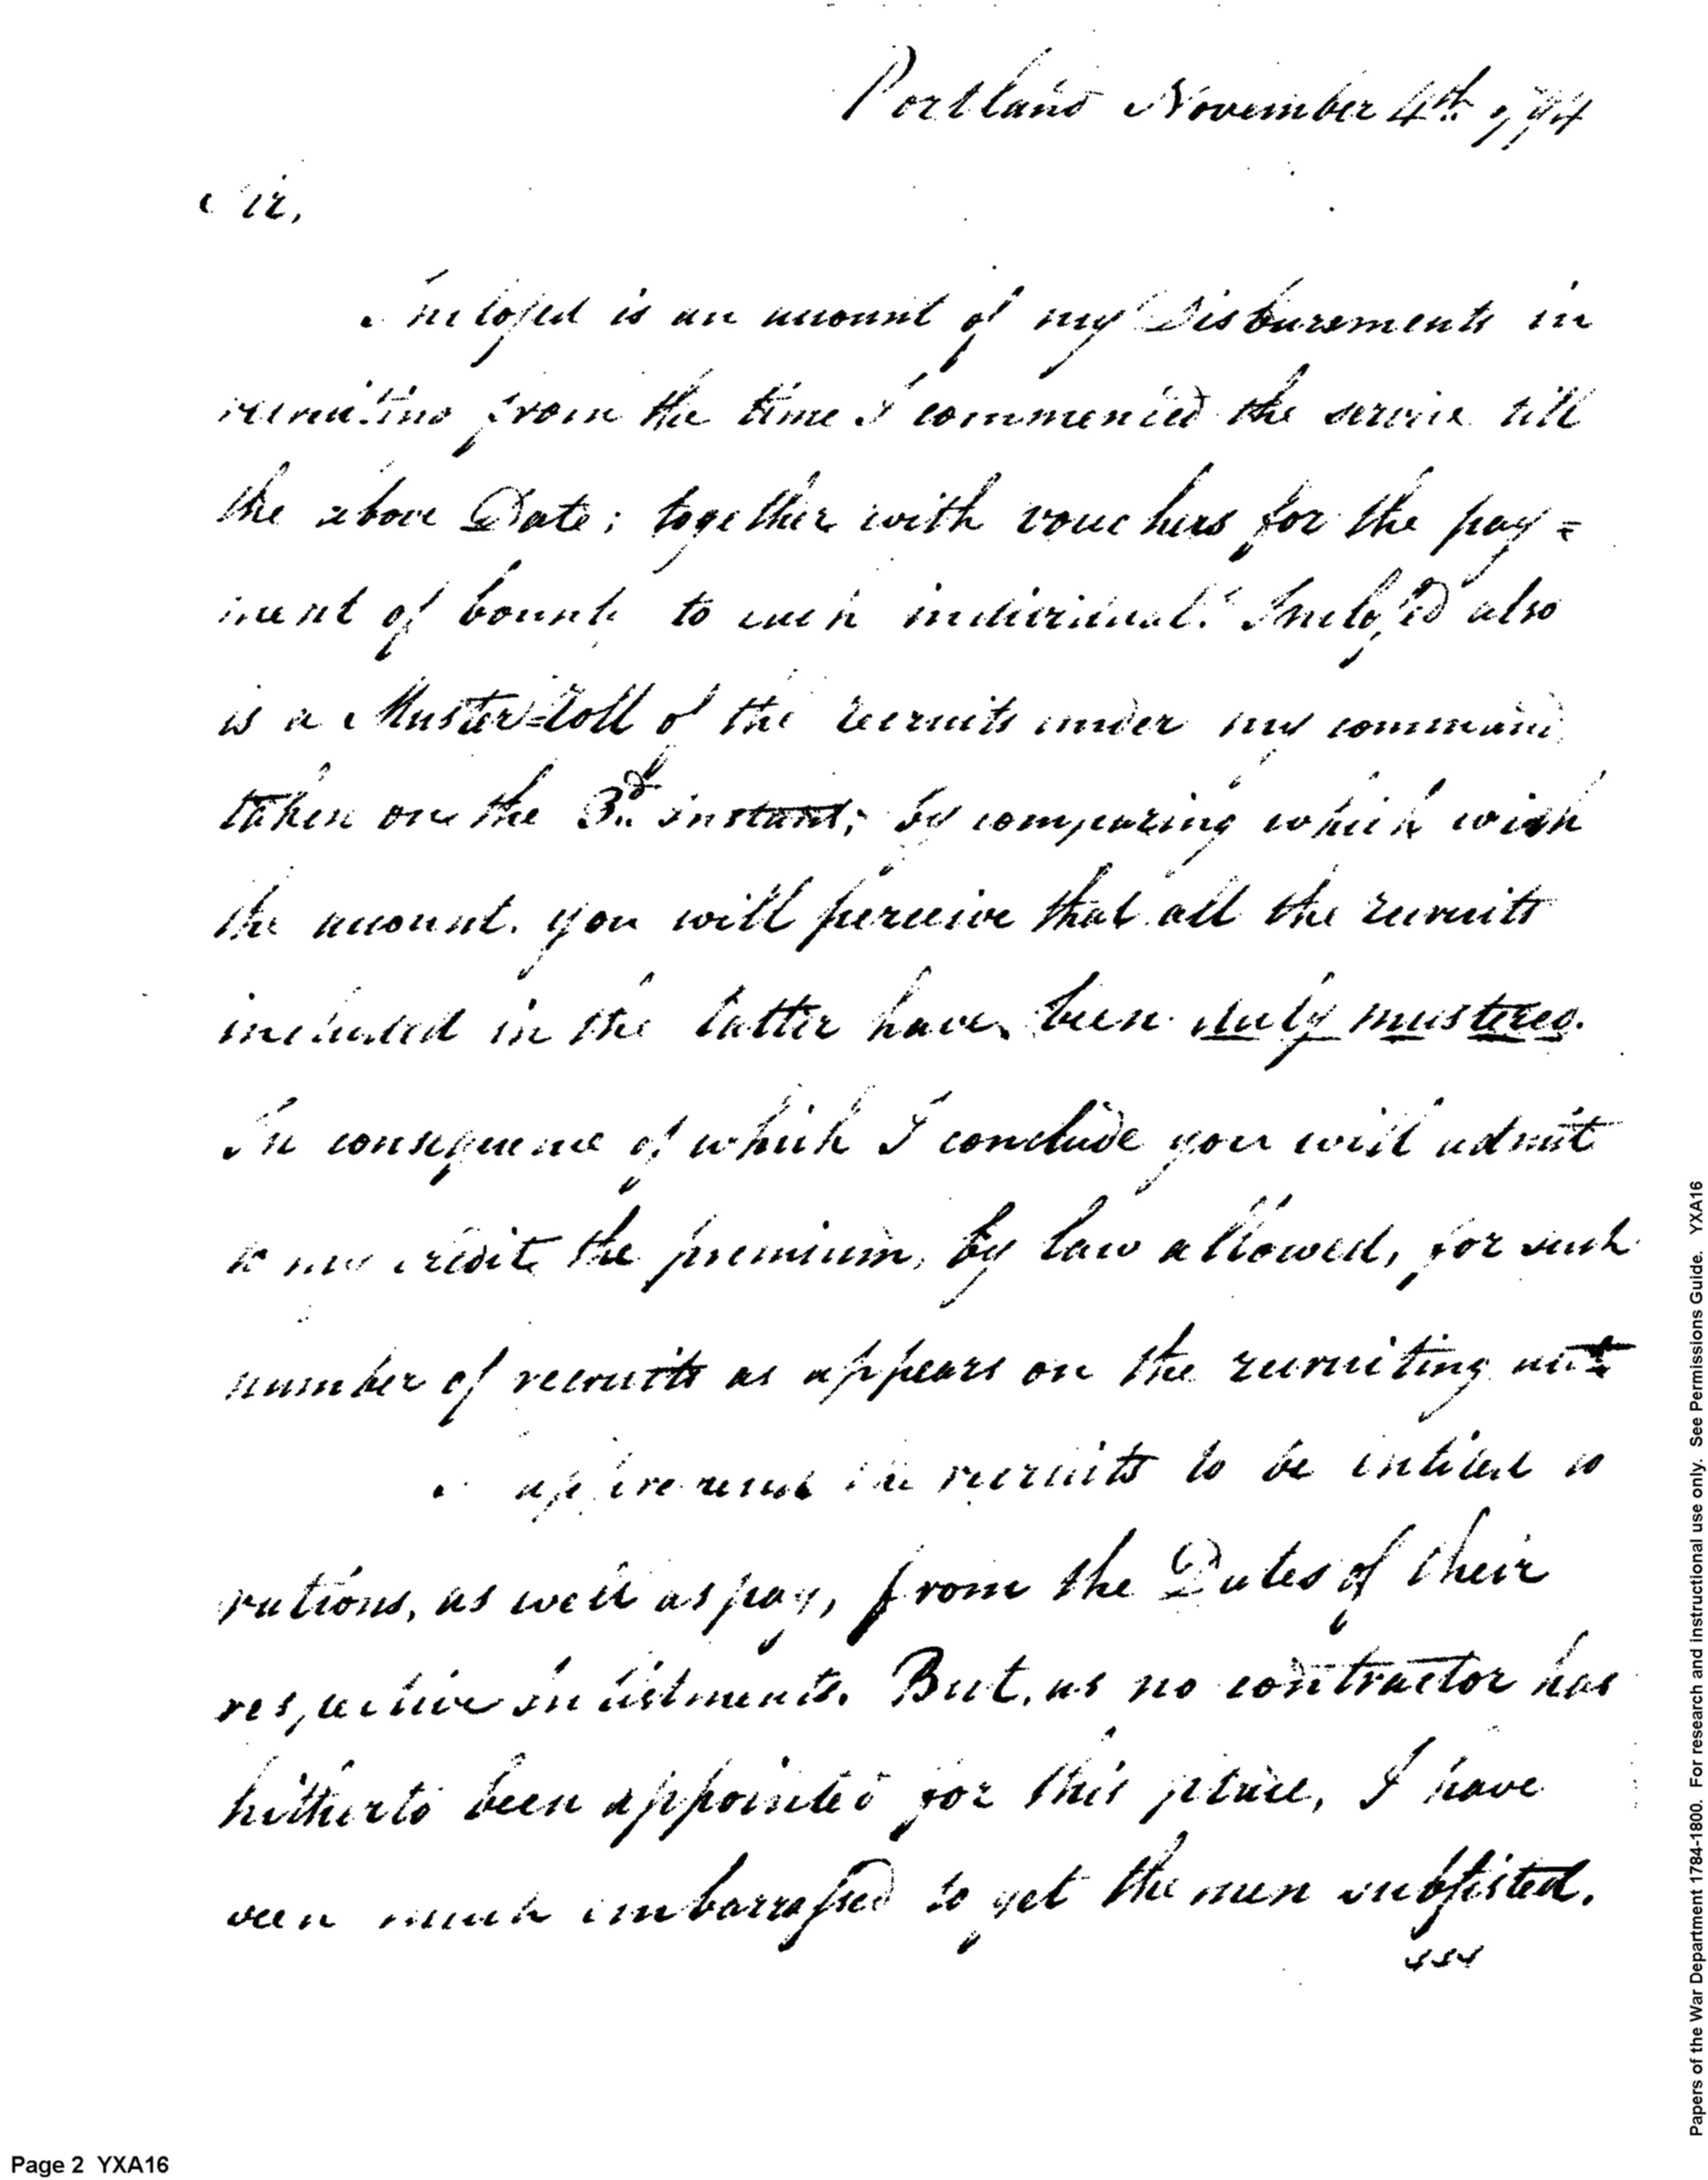 Portland November 4th 1794
Sir,
Inclosed is an account of my Disbursements in
recruiting from the time I commenced the service till
the above Date; together with vouchers for the pay=
ment of bounty to each individual. Inclosed also
is a Muster=Roll of the recruits under my command
taken on the 3.d instant; by comparing which with
the account. you will perceive that all the recruits
included in the latter have been duly mustered.
In consequence of which I conclude you will admit
to my credit the premium, by law allowed, for such
number of recruits as appears on the recruiting
I apprehend the recruits to be intitled to
rations, as well as pay, from the Dates of their
respective inlistments. But, as no contractor has
hitherto been appointed for this place, I have
been much embarrassed to get the men subsisted.
Page 2 YXA16
Papers of the War Department 1784-1800. For research and instructional use only. See Permissions Guide. YXA16